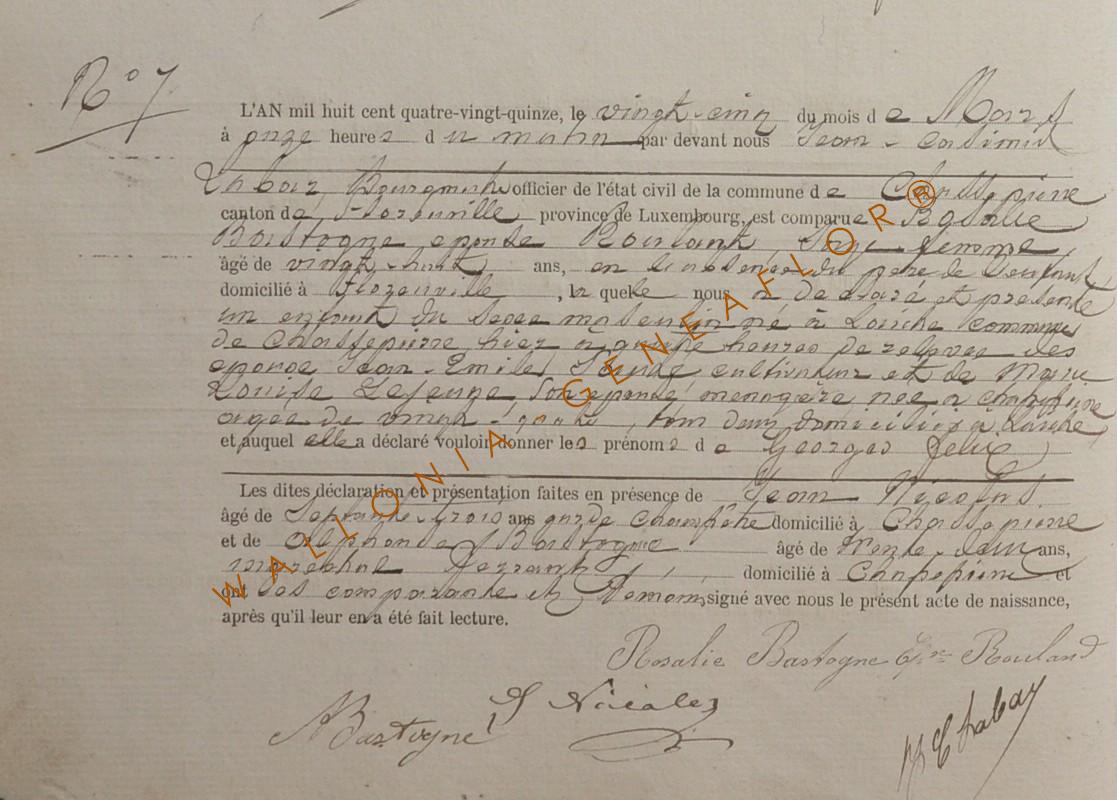 N° 7
L'AN mil huit cent quatre-vingt-quinze, le vingt-cinq du mois de Mars
à onze heures du matin par devant nous Jean-Casimir
Chabay Bourgmestre officier de l'état civil de la commune de Chassepierre
canton de Florenville province de Luxembourg, est comparue Rosalie
Bastogne épouse Rouland, Sage femme,
âgé de vingt-huit ans, en l'absence du père de l'enfant
domicilié à Florenville, laquelle nous a déclaré et présenté
un enfant du sexe masculin né à Laiche commune
de Chassepierre hier à heures de relevée des
époux Jean-Emile cultivateur et de Marie
Louise Lejeune son épouse ménagère née à Chassepierre
agée de vingt-quatre, tous deux domiciliés à Laiche,
et auquel elle a déclaré vouloir donner les prénoms de Georges Felix
Les dites déclaration et présentation faites en présence de Jean
âgé de Septante-trois ans garde champêtre domicilié à Chassepierre
et de Alphonse Bastogne âgé de trente-deux ans,
maréchal ferrant domicilié à Chassepierre et
ont les comparante et témoins signé avec nous le présent acte de naissance,
après qu'il leur en a été fait lecture.
Rosalie Bastogne Ép.se Rouland
J Nicolas
A Bastogne
J C Chabay
WALLONIA - GENEAFLOR®